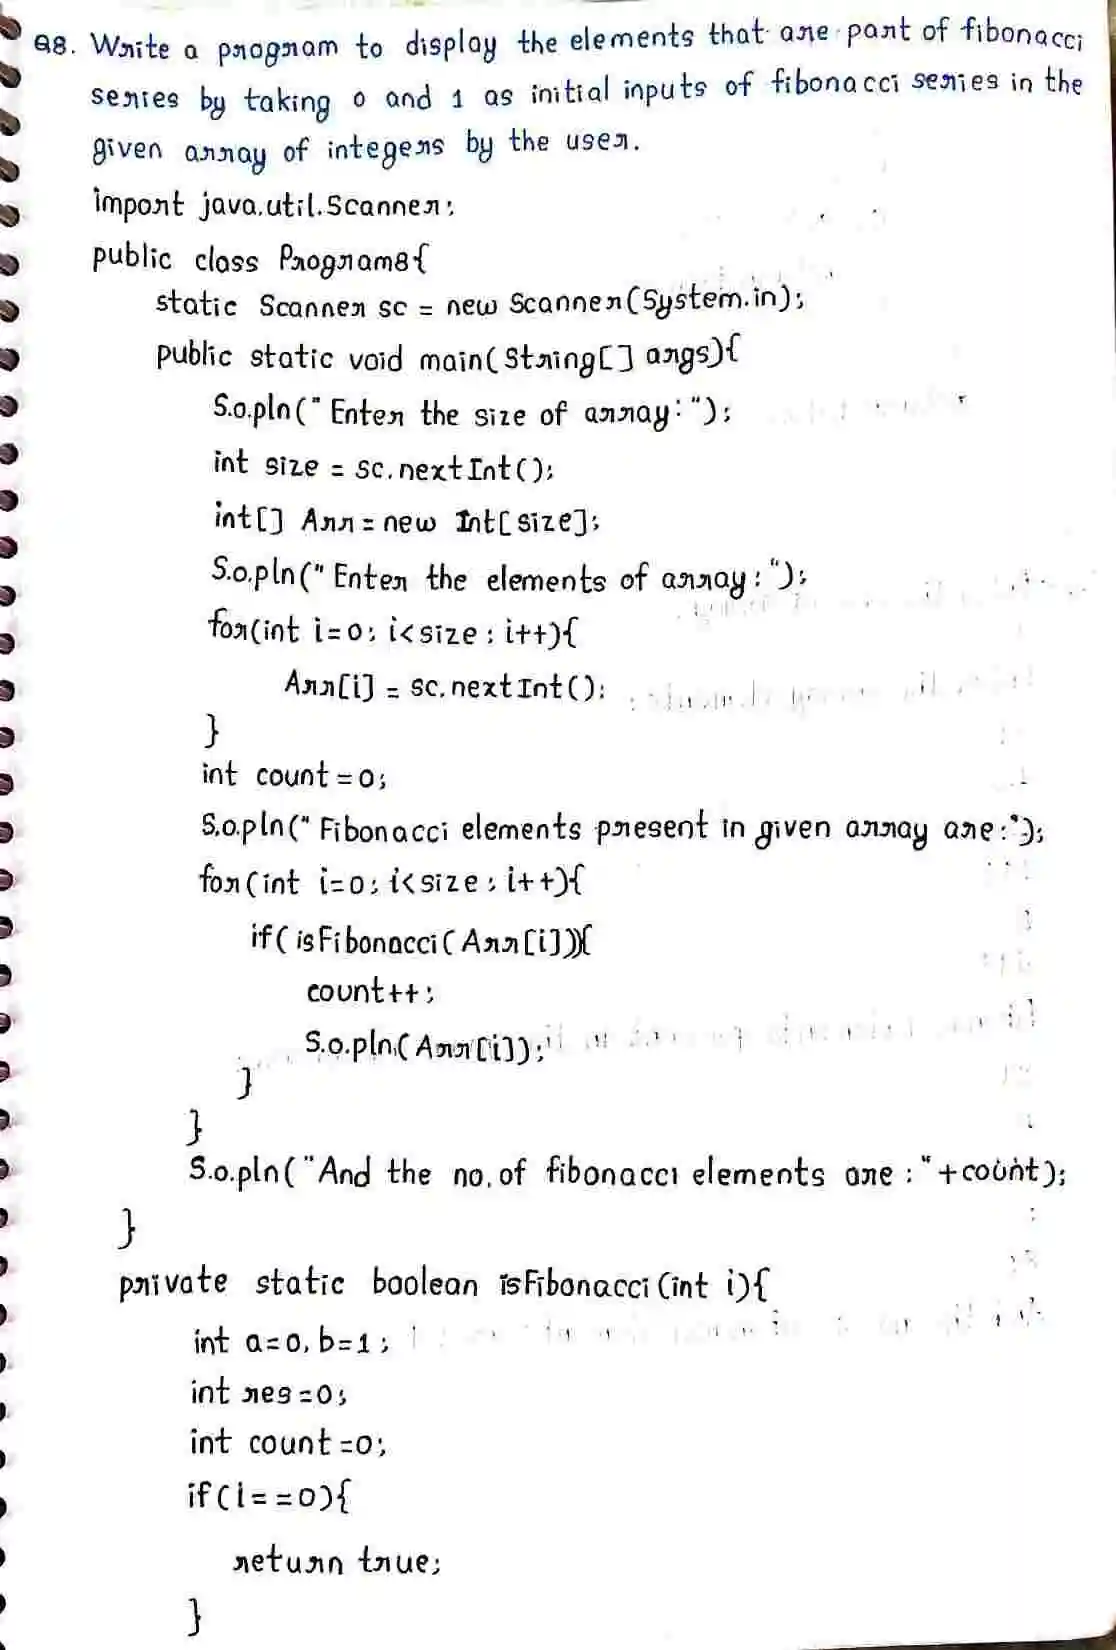 Q8. Write a program to display the elements that are part of fibonacci
series by taking 0 and 1 as initial inputs of fibonacci series in the
given array of integers by the user.
import java.util.Scanner;
public class Program8{
static Scanner sc = new Scanner(System.in);
public static void main(String[] args){
S.o.pln("Enter the size of array:");
int size = sc.nextInt();
int[] Arr = new Int[size];
S.o.pln("Enter the elements of array:");
for(int i=0; i<size; i++){
Arr[i] = sc.nextInt();
}
int count=0;
S.o.pln("Fibonacci elements present in given array are:");
for(int i=0; i<size; i++){
if(isFibonacci(Arr[i])){
count++;
S.o.pln(Arr[i]);
}
}
S.o.pln("And the no. of fibonacci elements are:"+count);
}
private static boolean isFibonacci(int i){
int a=0, b=1;
int res=0;
int count=0;
if(i==0){
return true;
}